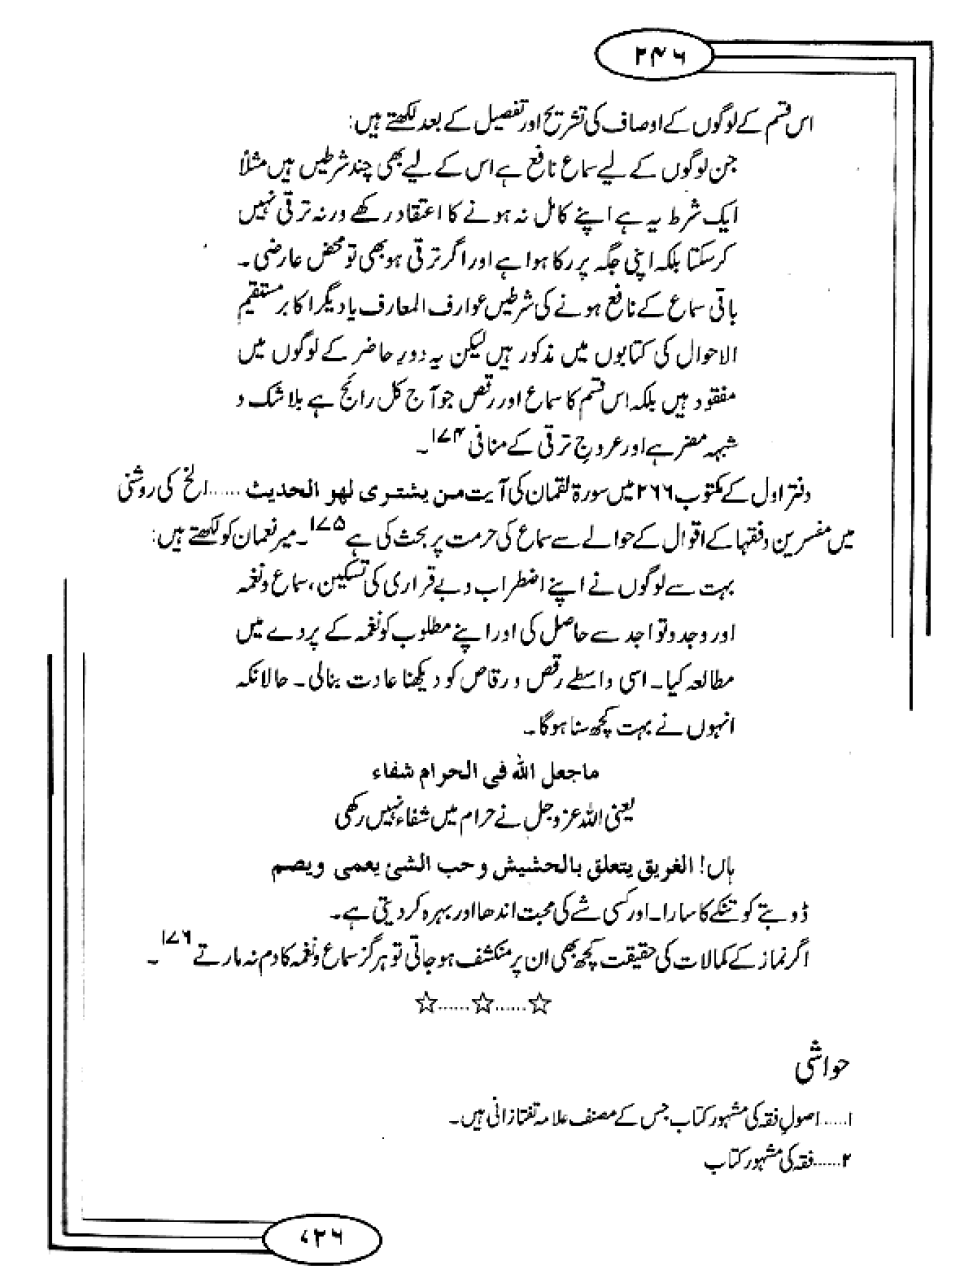 ۲۴۶
اس قسم کے لوگوں کے اوصاف کی تشریح اور تفصیل کے بعد لکھتے ہیں:
جن لوگوں کے لیے سماع نافع ہے اس کے لیے بھی چند شرطیں ہیں مثلاً
ایک شرط یہ ہے اپنے کامل نہ ہونے کا اعتقاد رکھے ورنہ ترقی نہیں
کرسکتا بلکہ اپنی جگہ پر رکا ہوا ہے اور اگر ترقی ہو بھی تو محض عارضی۔
باقی سماع کے نافع ہونے کی شرطیں عوارف المعارف یا دیگر اکابر مستقیم
الاحوال کی کتابوں میں مذکور ہیں لیکن یہ دورِ حاضر کے لوگوں میں
مفقود ہیں بلکہ اس قسم کا سماع اور رقص جو آج کل رائج ہے بلا شک و
شبہہ مضر ہے اور عروجِ ترقی کے منافی ۱۷۴۔
دفتر اول کے مکتوب ۲۶۶ میں سورۃ لقمان کی آیت من یشتری لهو الحدیث......الخ کی روشنی
میں مفسرین و فقہا کے اقوال کے حوالے سے سماع کی حرمت پر بحث کی ہے ۱۷۵۔ میر نعمان کو لکھتے ہیں:
بہت سے لوگوں نے اپنے اضطراب و بے قراری کی تسکین، سماع و نغمہ
اور وجد و تواجد سے حاصل کی اور اپنے مطلوب کو نغمہ کے پردے میں
مطالعہ کیا۔ اسی واسطے رقص و رقاص کو دیکھنا عادت بنالی۔ حالانکہ
انہوں نے بہت کچھ سنا ہوگا۔
ماجعل الله فی الحرام شفاء
یعنی اللہ عزوجل نے حرام میں شفاء نہیں رکھی
ہاں! الغریق یتعلق بالحشیش وحب الشیٔ یعمی ویصم
ڈوبتے کو تنکے کا سارا۔ اور کسی شے کی محبت اندھا اور بہرہ کردیتی ہے۔
اگر نماز کے کمالات کی حقیقت کچھ بھی ان پر منکشف ہو جاتی تو ہرگز سماع و نغمہ کا دم نہ مارتے ۱۷۶۔
☆......☆......☆
حواشی
۱.....اصولِ فقہ کی مشہور کتاب جس کے مصنف علامہ تفتازانی ہیں۔
۲......فقہ کی مشہور کتاب